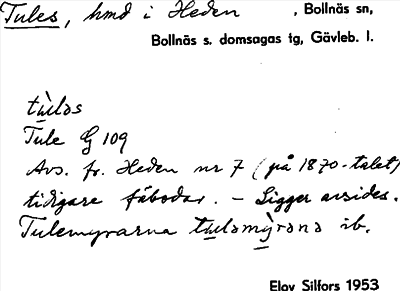 Tules, hmd i Heden , Bollnäs sn,
Bollnäs s. domsagas tg, Gävleb. l.
tùlas
Tule G 109
Avs. fr. Heden nr 7 (på 1870-talet)
tidigare fäbodar. – Ligger avsides.
Tulemyrarna tùlamỳrana ib.
Elov Silfors 1953